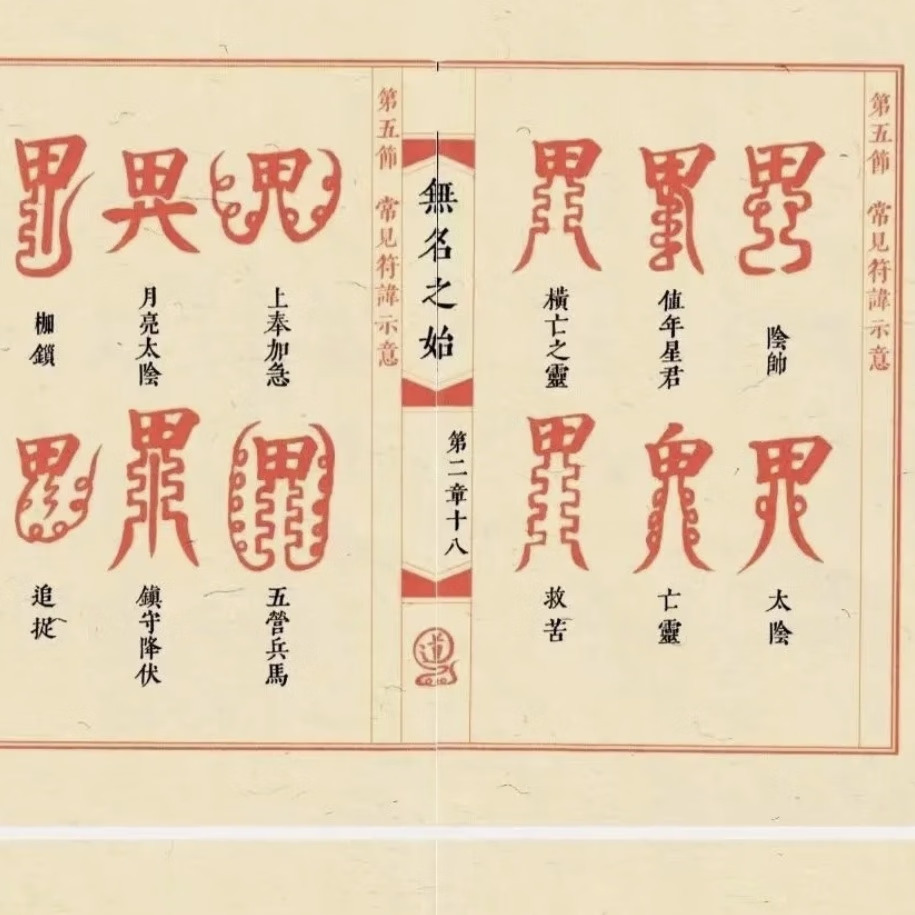 第五節 常見符諱示意
陰帥
值年星君
橫亡之靈
太陰
亡靈
救苦
無名之始
第二章十八
第五節 常見符諱示意
上奉加急
月亮太陰
枷鎖
五營兵馬
鎮守降伏
追捉